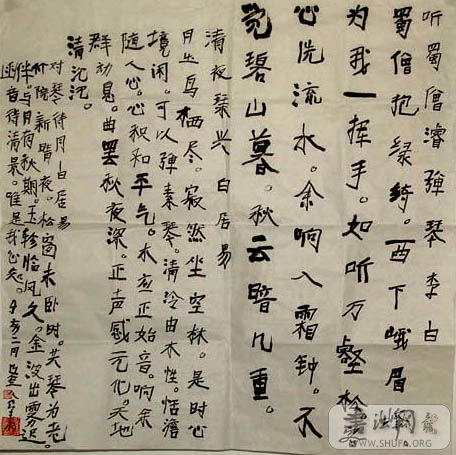 听蜀僧濬彈琴 李白
蜀僧抱绿绮。西下峨眉
为我一挥手。如听万壑松
心洗流水。余响入霜钟。不
觉碧山暮。秋云暗几重。
清夜琴兴 白居易
月出鸟栖尽。寂然坐空林。是时心
境闲。可以弹素琴。清冷由木性。恬澹
随人心。心积和平气。木应正始音。响余
群动息。曲罢秋夜深。正声感元化。天地
清沉沉。
对琴待月白居易
竹院新晴夜。松窗未卧时。共琴为老
伴。与月有秋期。玉轸临风久。金波出雾迟。
幽音待清景。唯是我心知。
書法网
WWW.SHUFA.ORG